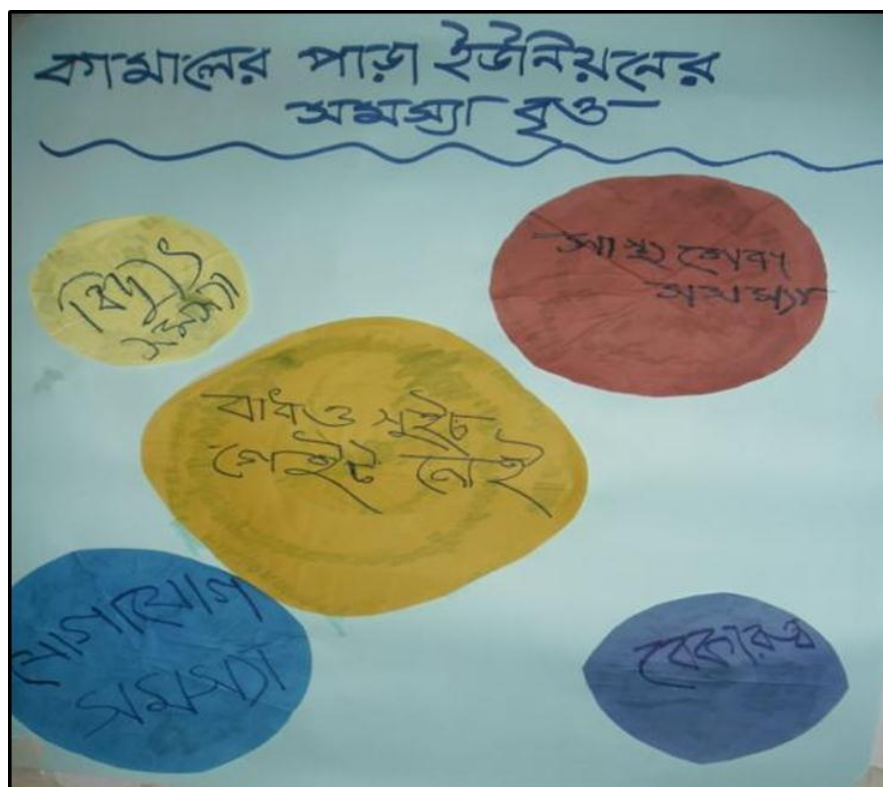 কামালের পাড়া ইউনিয়নের
সমস্যা বৃত্ত
বিদ্যুৎ
সমস্যা
সাস্থ্য সেবা
সমস্যা
বাধ ও সুইচ
গেইট নেই
যোগাযোগ
সমস্যা
বেকারত্ব